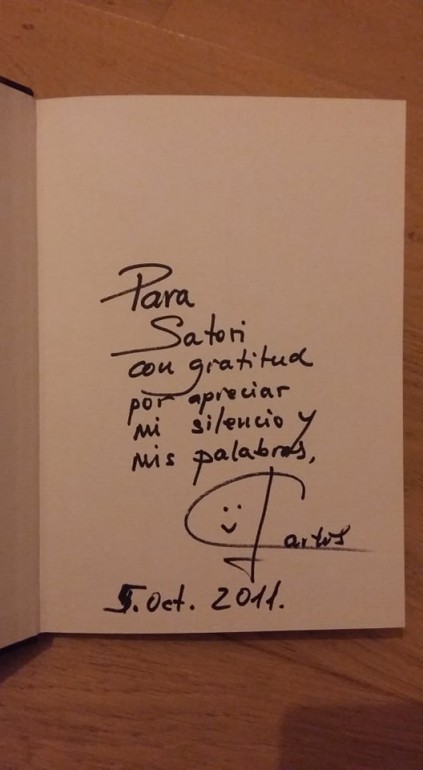 Para
Satori
con gratitud
por apreciar
mi silencio y
mis palabras,
Carlos
5. Oct. 2011.